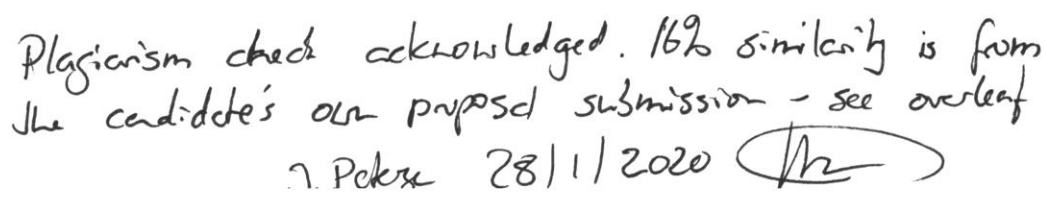 Plagiarism check acknowledged. 16% similarity is from
the candidate's own proposal submission - see overleaf
J. Petersen 28/1/2020